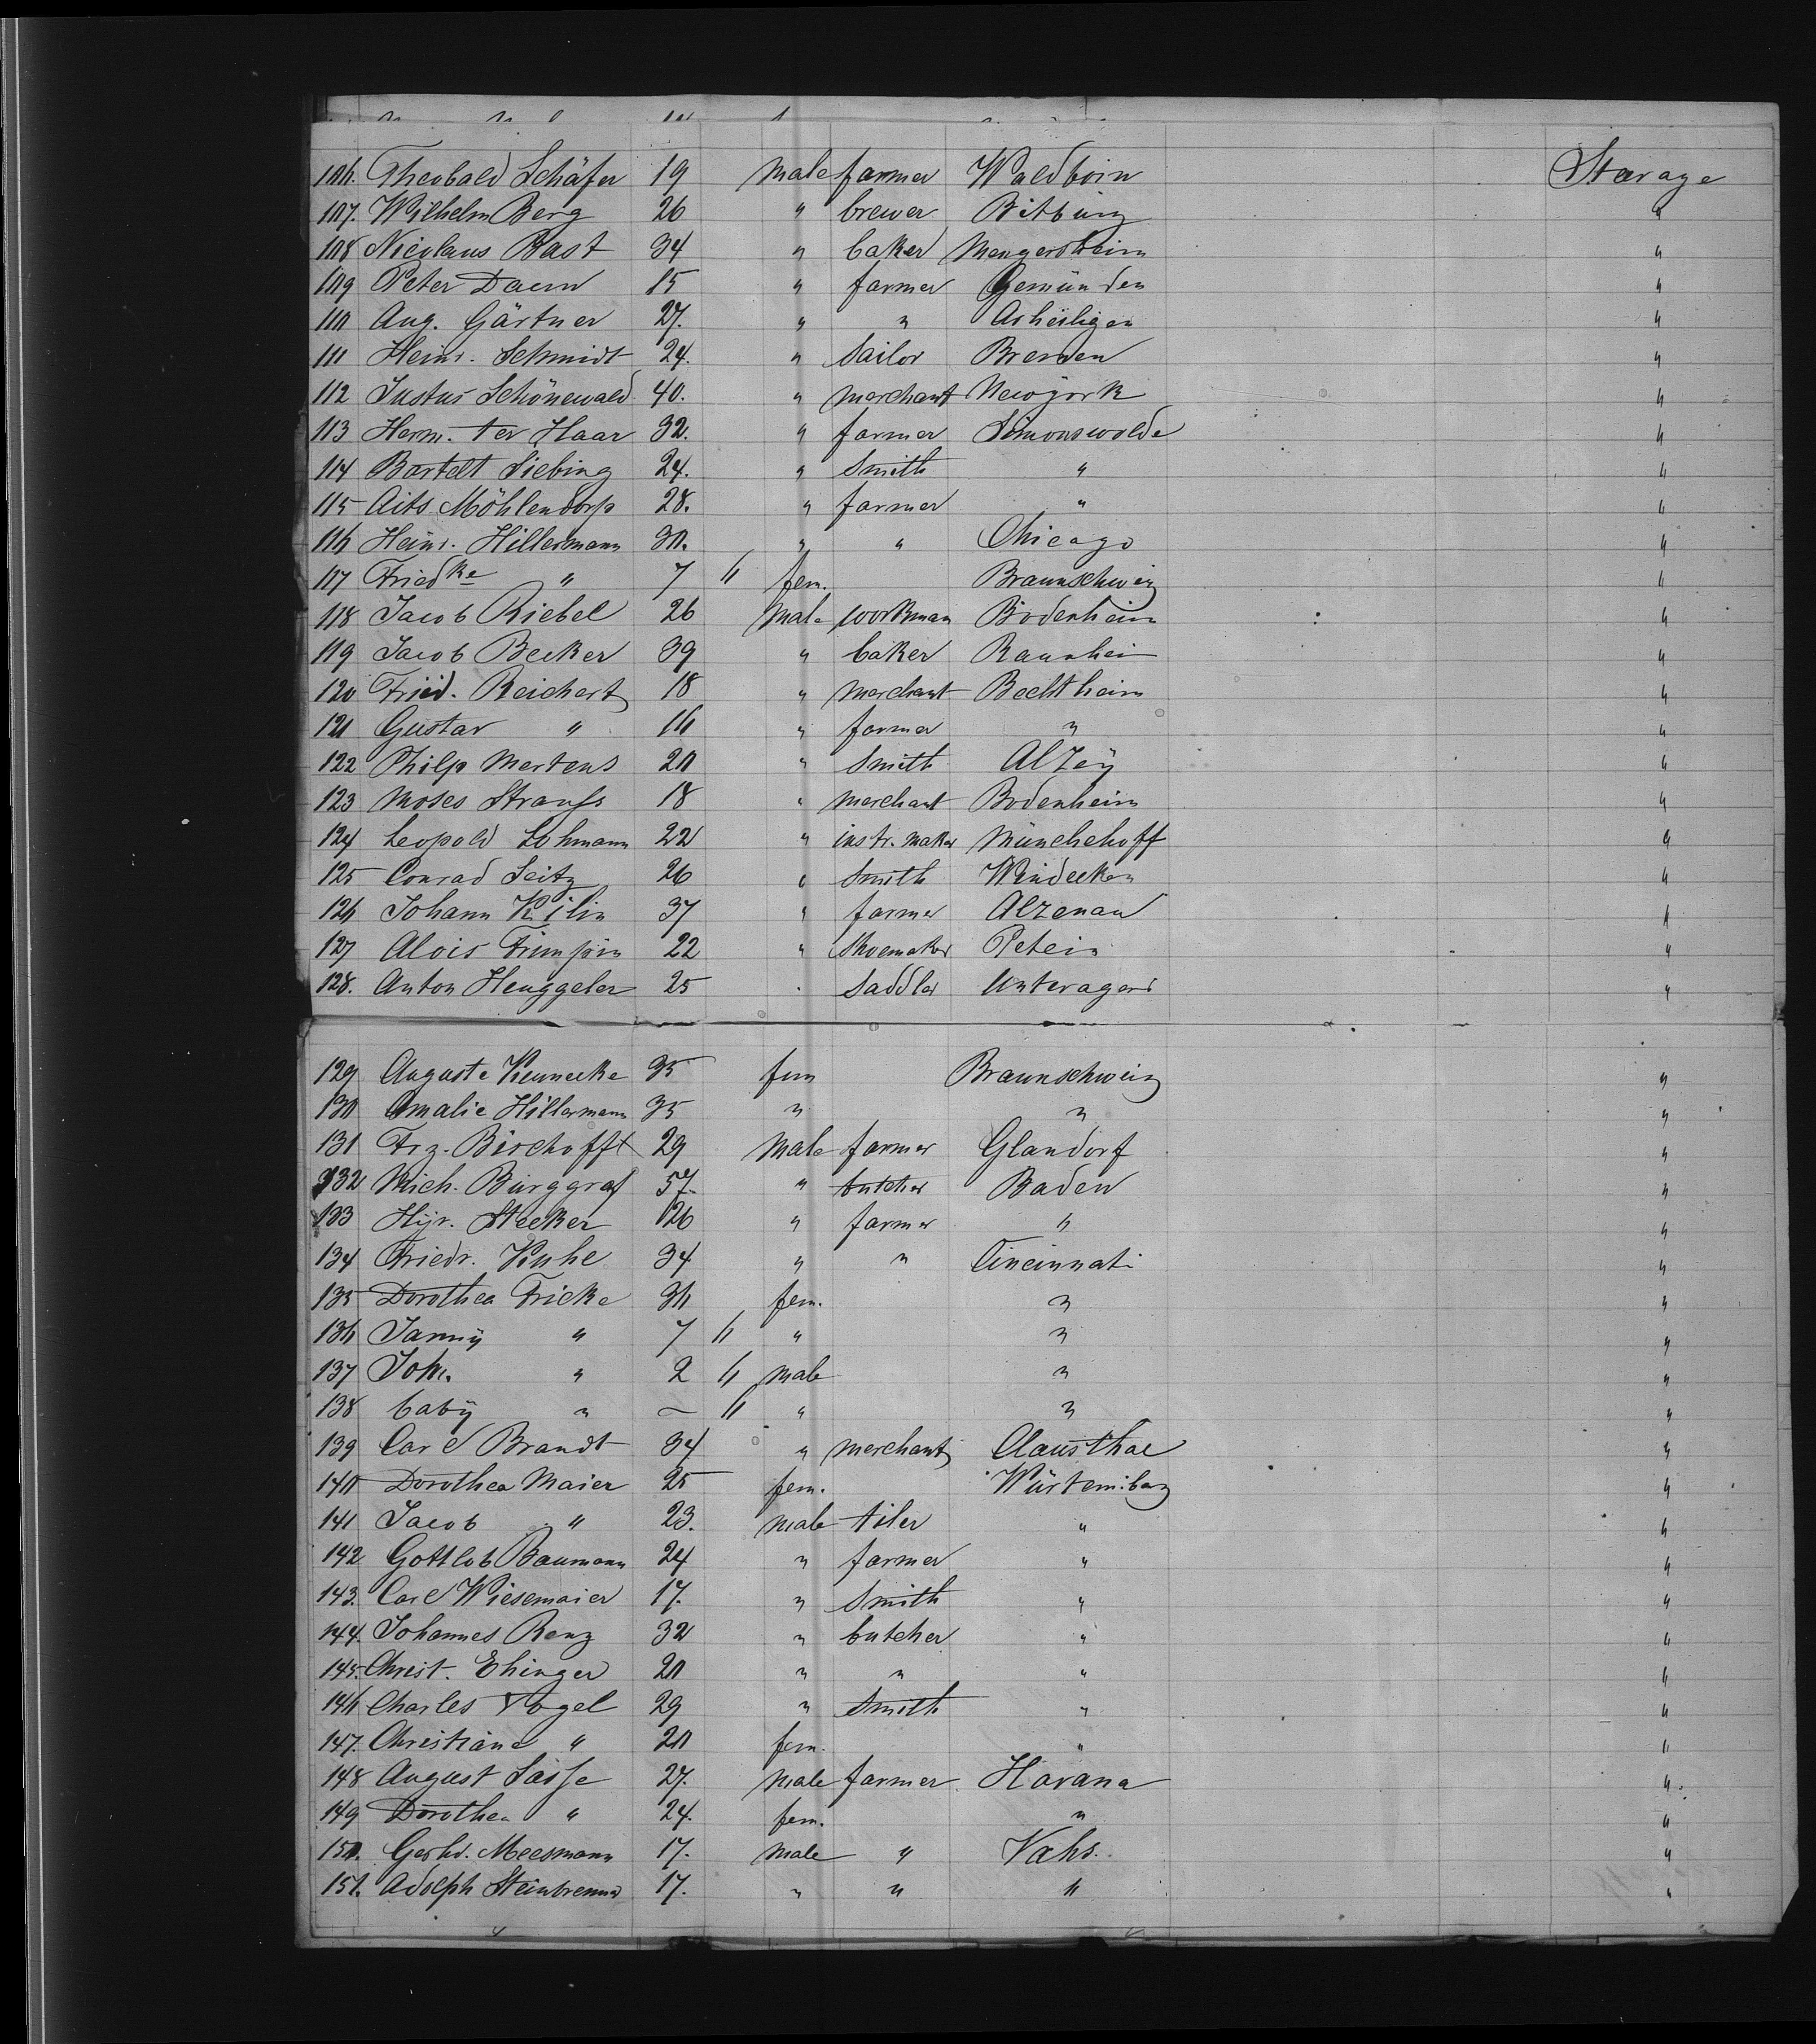 106. Theobald Schäfer 19 male farmer Waldboin Steerage
107. Wilhelm Berg 26 " brewer Bitburg "
108 Nicolaus Bast 34 " baker Mengersheim "
109 Peter Daum 15 " farmer Gemünden "
110 Aug. Gärtner 27. " " Arheiligen "
111 Heinr. Schmidt 24. " sailor Bremen "
112 Justus Schönewald 40. " merchant Newyork "
113 Herm. ter Haar 32. " farmer Simonswolde "
114 Bartelt Siebing 24. " smith " "
115 Aits Möhlendorp 28. " farmer " "
116 Heinr. Hillermann 30. " " Chicago "
117 Friedke " 7 " fem. Braunschweig "
118 Jacob Riebel 26 male workman Bodenheim "
119 Jacob Becker 39 " baker Raunhei "
120 Fried. Reichert 18 " merchant Bechtheim "
121 Gustav " 16 " farmer " "
122 Philp Mertens 20 " smith Alzey "
123 Moses Strauss 18 " merchant Bodenheim "
124 Leopold Lohmann 22 " instr. maker Münchehoff "
125 Conrad Seitz 26 " smith Windecken "
126 Johann Kilin 37 " farmer Alzenau "
127 Alois 22 " shoemaker "
128. Anton Henggeler 25 " saddler Unterageri "
129 Auguste Kennecke 35 fem Braunschweig "
130 Amalie Hillermann 35 " " "
131 Frz. Bischofft 29 male farmer Glandorf "
132 Mich. Burggraf 57. " butcher Baden "
133 Hyr. Stecker 26 " farmer " "
134 Friedr. Kuhe 34 " " Cincinnati "
135 Dorothea Fricke 36 fem. " "
136 Janny " 7 " " " "
137 Joh. " 2 " male " "
138 baby " ~ " " " "
139 Carl Brandt 34 " merchant Clausthal "
140 Dorothea Maier 25 fem. Würtemberg "
141 Jacob " 23. male tiler " "
142 Gottlob Baumann 24 " farmer " "
143. Carl Wiesemaier 17. " smith " "
144. Johannes Renz 32 " butcher " "
145. Christ. Ehinger 20 " " " "
146 Charles Vogel 29 " smith " "
147. Christiane " 20 fem. " "
148 August Sasse 27. male farmer Havana "
149 Dorothea " 24. fem. " "
150. Gerhd. Meesmann 17. male " Vahs. "
151. Adolph Steinbrenner 17. " " " "